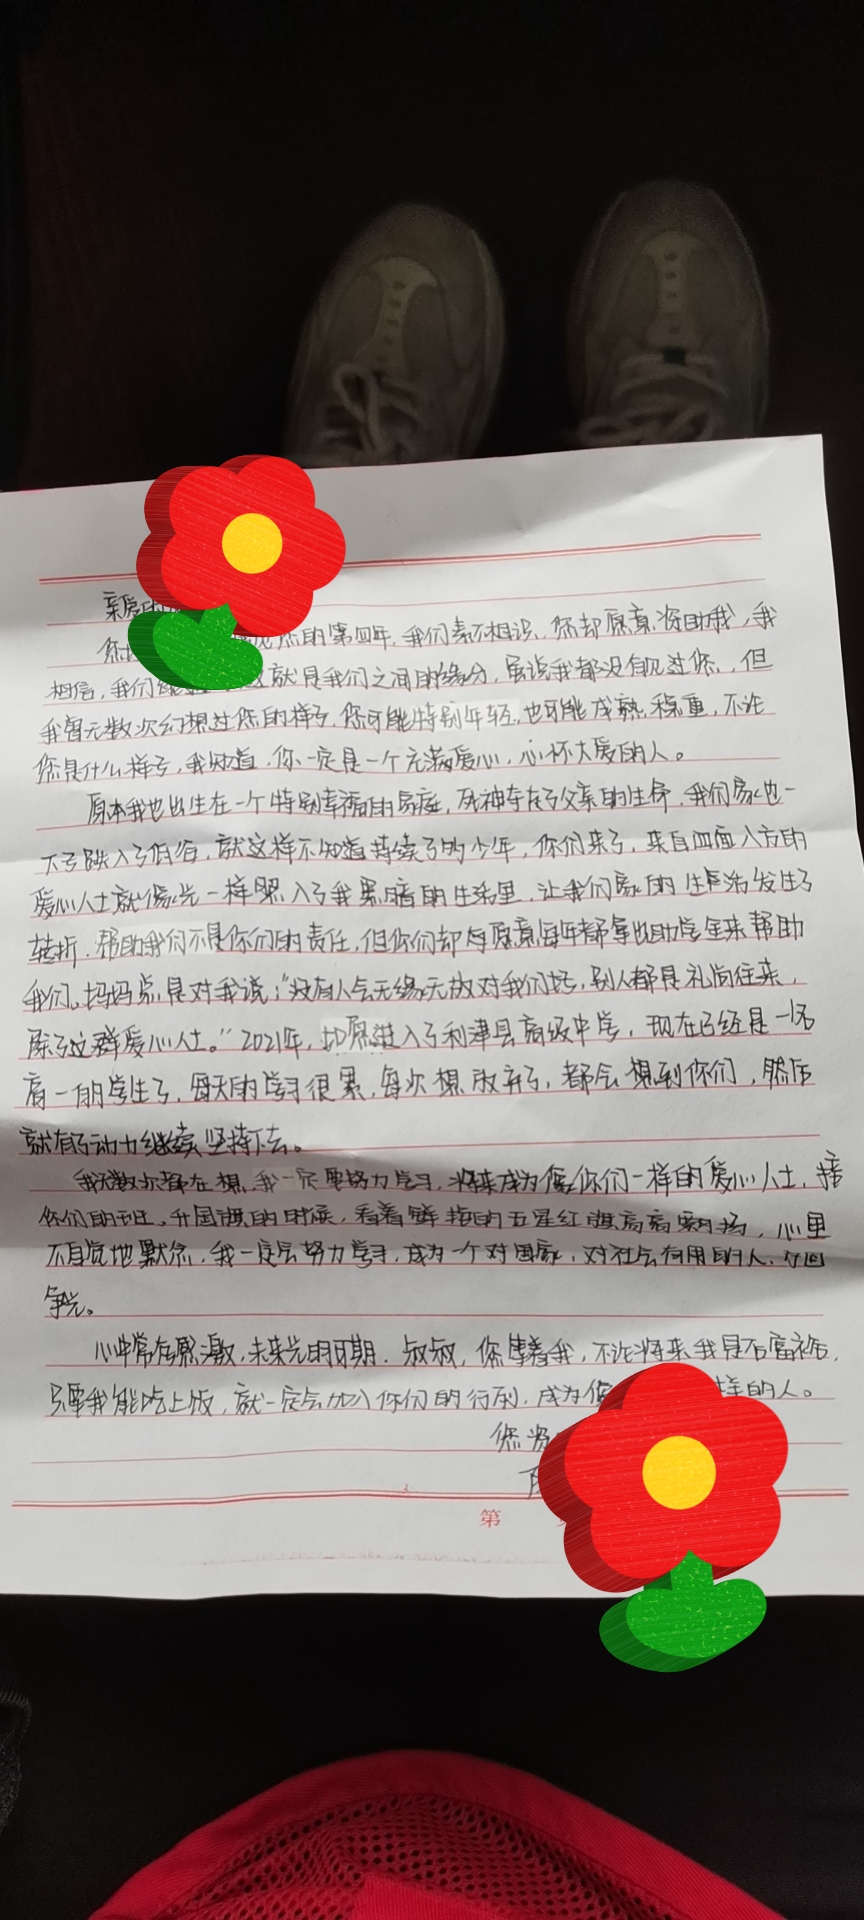 亲爱的
您 您的第四年，我们素不相识，您却愿意资助我，我
相信，我们 就是我们之间的缘分，虽说我都没有见过您，但
我曾无数次幻想过您的样子，您可能特别年轻，也可能成熟稳重，不论
您是什么样子，我知道，你一定是一个充满爱心，心怀大爱的人。
原本我也出生在一个特别幸福的家庭，死神夺走了父亲的生命，我们家也一
下子跌入了低谷，就这样不知道持续了多少年，你们来了，来自四面八方的
爱心人士就像光一样照入了我黑暗的生活里，让我们家的生活发生了
转折，帮助我们不是你们的责任，但你们却 愿意每年都拿出助学金来帮助
我们。妈妈总是对我说：“没有人会无缘无故对我们好，别人都是礼尚往来，
除了这群爱心人士。”2021年，如愿进入了利津县高级中学，现在已经是一名
高一的学生了，每天的学习很累，每次想放弃了，都会想到你们，然后
就有了动力继续坚持下去。
我无数次都在想，我一定要努力学习，将来成为像你们一样的爱心人士，接
你们的班，升国旗的时候，看着鲜艳的五星红旗高高飘扬，心里
不自觉地默念，我一定会努力学习，成为一个对国家，对社会有用的人，为国
争光。
心中常存感激，未来光明可期，叔叔，您 着我，不论将来我是否富裕，
只要我能吃上饭，就一定会加入你们的行列，成为像 样的人。
您资
第